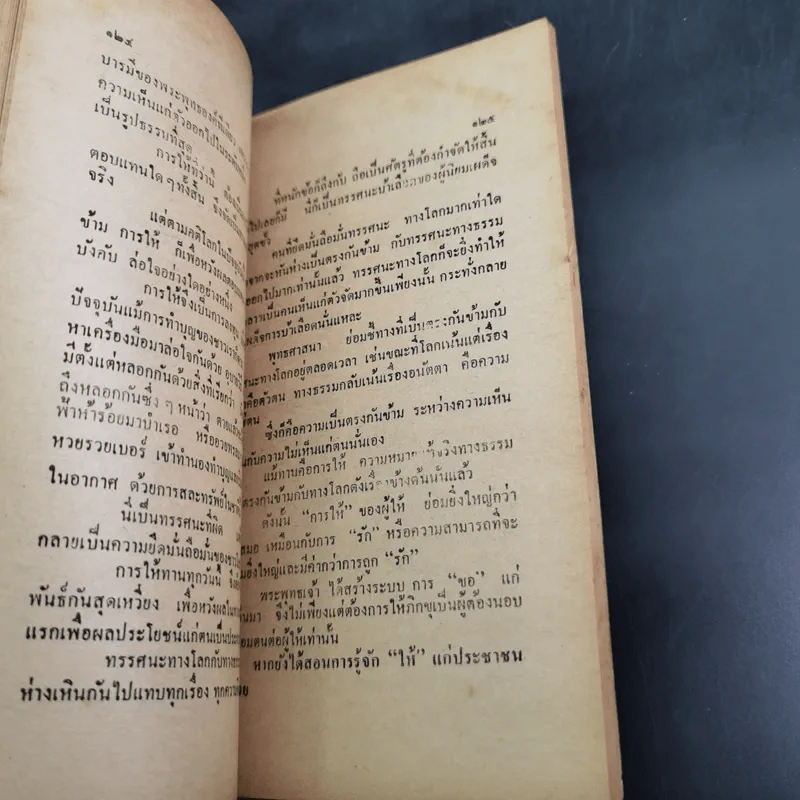 ๑๒๔
บารมีของพระพุทธองค์ที่เสี่ยว
ความเห็นแก่ตัวออกไปใน
เป็นรูปธรรมที่สุด
การให้ที่ว่านี้ ต้อง
ตอบแทนใดๆทั้งสิ้น จึงจัดเป็น
จริง
แต่ตามคติโลกในปัจจุบัน
ข้าม การให้ ก็เพื่อหวังผลตอบ
บังคับ ล่อใจอย่างใดอย่างหนึ่ง
การให้จึงเป็นการลงทุน
ปัจจุบันแม้การทำบุญของชาวเรา
หาเครื่องมือมาล่อใจกันด้วย
มีตั้งแต่หลอกกันด้วยสิ่งที่เรียกว่า
ถึงหลอกกันซึ่งๆหน้าว่า ตายแล้ว
ฟ้าห้าร้อยมาบำเรอ หรืออวยพร
หวยรวยเบอร์ เข้าทำนองทำบุญ
ในอากาศ ด้วยการสละทรัพย์ใน
นี่เป็นทรรศนะที่ผิด
กลายเป็นความยึดมั่นถือมั่นของชาว
การให้ทานทุกวันนี้ จึง
พันธ์กันสุดเหวี่ยง เพื่อหวังผล
แรกเพื่อผลประโยชน์แก่ตนเป็น
ทรรศนะทางโลกกับทาง
ห่างเหินกันไปแทบทุกเรื่อง ทุกความ
๑๒๕
ที่หนักข้อก็ถึงกับ ถือเป็นศัตรูที่ต้องกำจัดให้สิ้น
ไปเลยก็มี นี่ก็เป็นทรรศนะบ้าเลือดของผู้นิยมเผด็จ
สุดขั้ว
คนที่ยึดมั่นถือมั่นทรรศนะ ทางโลกมากเท่าใด
จากจะหันห่างเป็นตรงกันข้าม กับทรรศนะทางธรรม
ออกไปมากเท่านั้นแล้ว ทรรศนะทางโลกก็จะยิ่งทำให้
ลาาเป็นคนเห็นแก่ตัวจัดมากขึ้นเพียงนั้น กระทั่งกลาย
ผด็จการบ้าเลือดนั่นแหละ
พุทธศาสนา ย่อมชี้ทางที่เป็นตรงกันข้ามกับ
นะทางโลกอยู่ตลอดเวลา เช่นขณะที่โลกเน้นแต่เรื่อง
คือตัวตน ทางธรรมกลับเน้นเรื่องอนัตตา คือความ
ตน
ซึ่งก็คือความเป็นตรงกันข้าม ระหว่างความเห็น
นกับความไม่เห็นแก่ตนนั่นเอง
แม้ทานคือการให้ ความหมายแท้จริงทางธรรม
ตรงกันข้ามกับทางโลกดังเรื่องข้างต้นนั้นแล้ว
ดังนั้น “การให้” ของผู้ให้ ย่อมยิ่งใหญ่กว่า
สมอ เหมือนกับการ “รัก” หรือความสามารถที่จะ
มยิ่งใหญ่และมีค่ากว่าการถูก “รัก”
พระพุทธเจ้า ได้สร้างระบบ การ “ขอ” แก่
นมา จึงไม่เพียงแต่ต้องการให้ภิกขุเป็นผู้ต้องนอบ
อมตนต่อผู้ให้เท่านั้น
หากยังได้สอนการรู้จัก “ให้” แก่ประชาชน